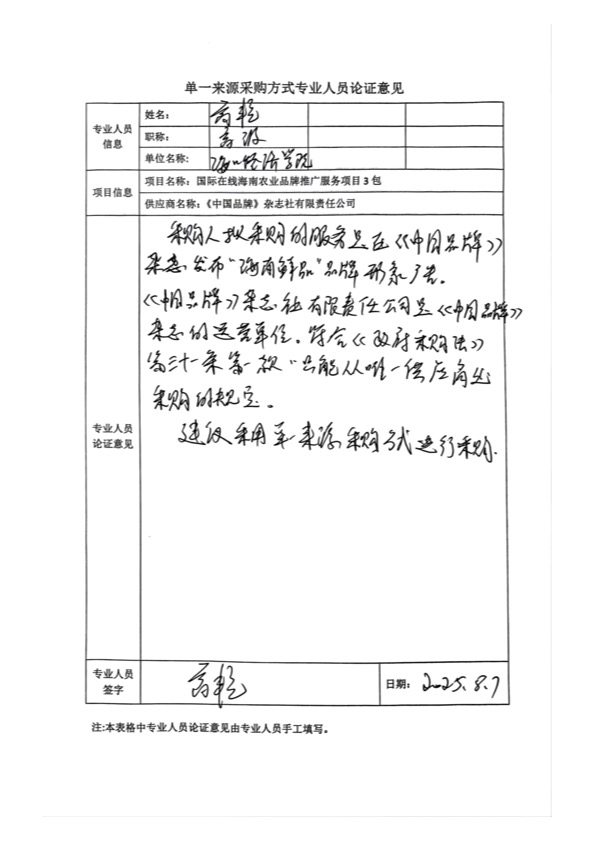 单一来源采购方式专业人员论证意见
专业人员信息
姓名：
职称： 高级
单位名称： 海口经济学院
项目信息
项目名称：国际在线海南农业品牌推广服务项目3包
供应商名称：《中国品牌》杂志社有限责任公司
专业人员论证意见
采购人拟采购的服务是在《中国品牌》
杂志发布“海南鲜品”品牌形象广告。
《中国品牌》杂志社有限责任公司是《中国品牌》
杂志的运营单位。符合《政府采购法》
第三十一条第一款“只能从唯一供应商处
采购的规定。
建议采用单一来源采购方式进行采购.
专业人员签字
日期： 2025.8.7
注:本表格中专业人员论证意见由专业人员手工填写。